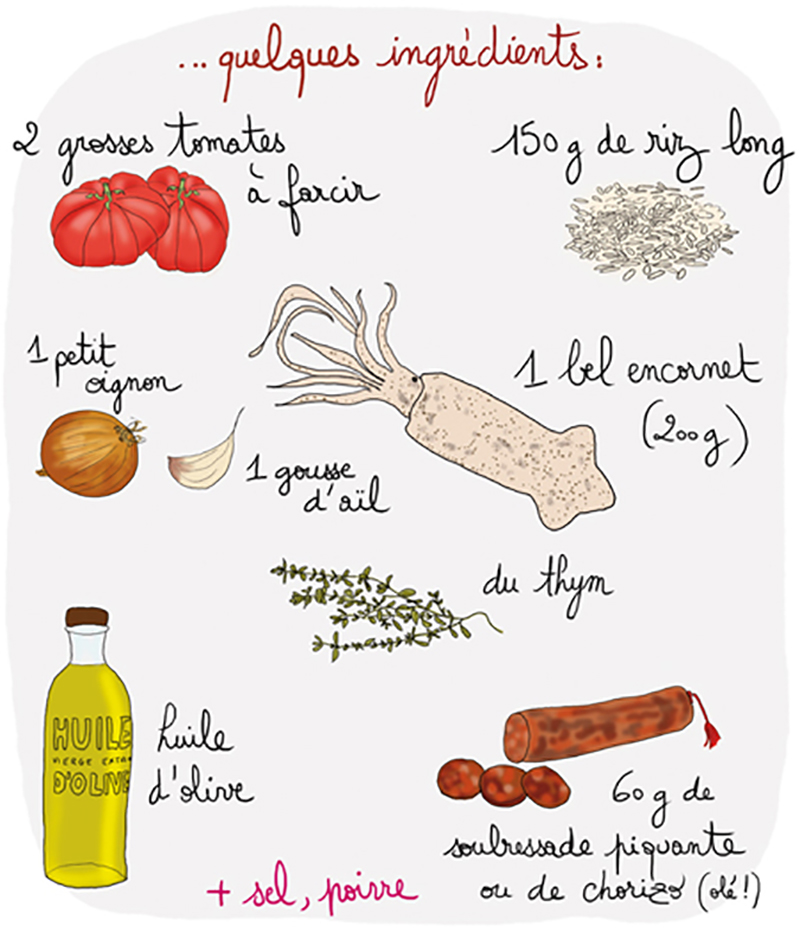 ... quelques ingrédients :
2 grosses tomates
à farcir
150 g de riz long
1 petit
oignon
1 bel encornet
(200 g)
1 gousse
d'aïl
du thym
HUILE
VIERGE EXTRA
D'OLIVE
huile
d'olive
60 g de
soubressade piquante
ou de chorizo (olé!)
+ sel, poivre